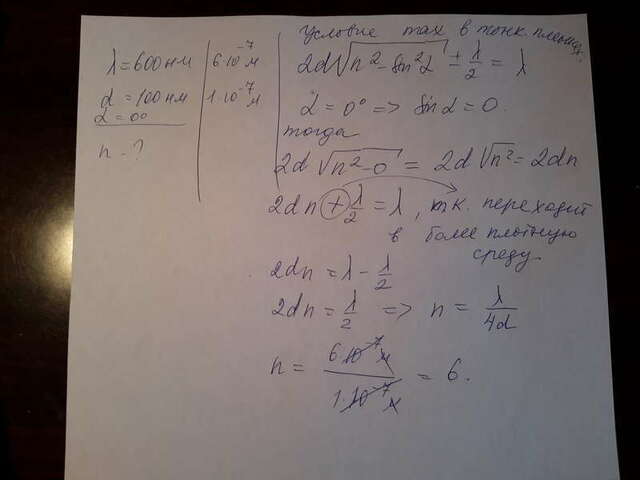 λ = 600 нм | 6·10⁻⁷ м
d = 100 нм | 1·10⁻⁷ м
α = 0°
n - ?
Условие max в тонк. пленках.
2d√(n² - sin²α) ± λ/2 = λ
α = 0° => sin α = 0.
тогда
2d√(n² - 0) = 2d√n² = 2dn
2dn + λ/2 = λ, т.к. переходит
в более плотную
среду.
2dn = λ - λ/2
2dn = λ/2 => n = λ/4d
n = 6·10⁻⁷ м / 1·10⁻⁷ м = 6.